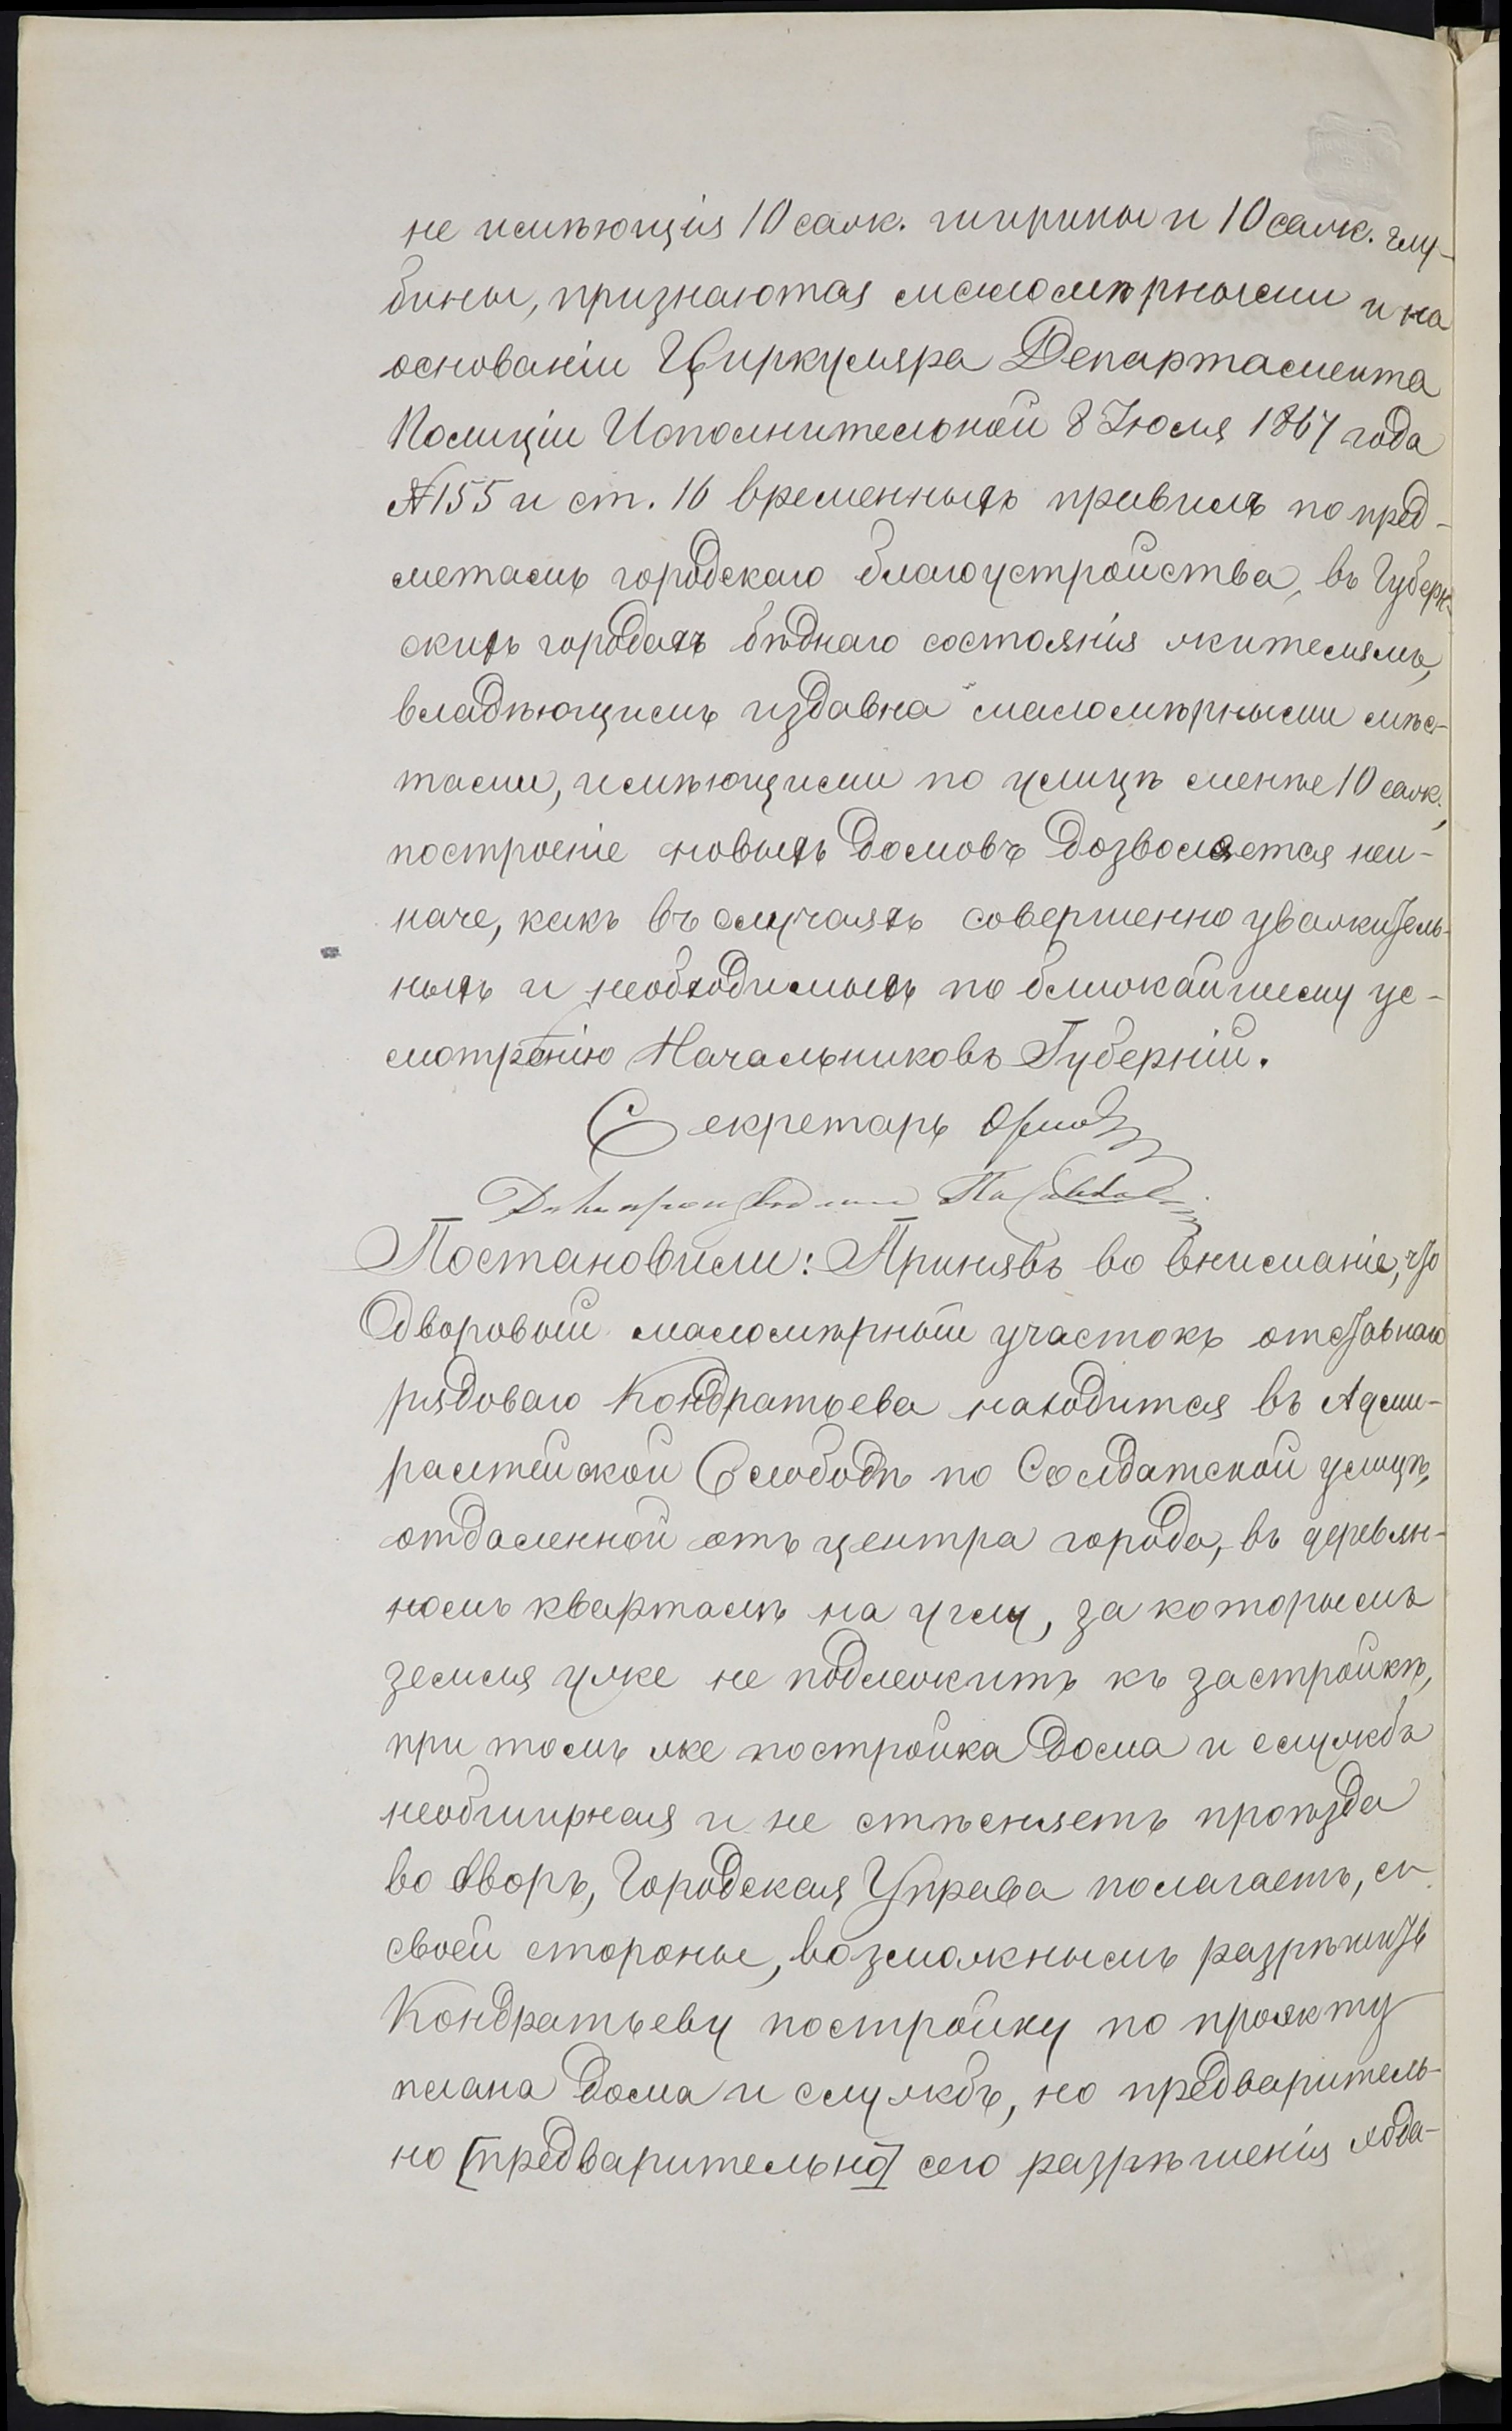 не имѣющія 10 саж. ширины и 10 саж. глу-
бины, признаются маломѣрными и на
основаніи Циркуляра Департамента
Полиціи Исполнительной 8 Іюля 1867 года
№155 и ст. 16 временныхъ правилъ по пред-
метамъ городскаго благоустройства, въ Губерн-
скихъ городахъ бѣднаго состоянія жителямъ,
владѣющимъ издавна маломѣрными мѣс-
тами, имѣющими по улицѣ менѣе 10 саж.,
построеніе новыхъ домовъ дозволяется неи-
наче, какъ въ случаяхъ совершенно уважитель-
ныхъ и необходимыхъ по ближайшему ус-
мотрѣнію Начальниковъ Губерній.
Секретарь
Дѣлопроизводитель
Постановили: Принявъ во вниманіе, что
дворовый маломѣрный участокъ отставнаго
рядоваго Кондратьева находится въ Адми-
ралтейской Слободѣ по Солдатской улицѣ,
отдаленной отъ центра города, въ деревян-
номъ кварталѣ на углу, за которымъ
земля уже не подлежитъ къ застройкѣ,
при томъ же постройка дома и службъ
необширная и не стѣсняетъ проѣзда
во дворъ, Городская Управа полагаетъ, съ
своей стороны, возможнымъ разрѣшить
Кондратьеву постройку по проэкту
плана дома и службъ, но предваритель-
но [предварительно] сего разрѣшенія хода-